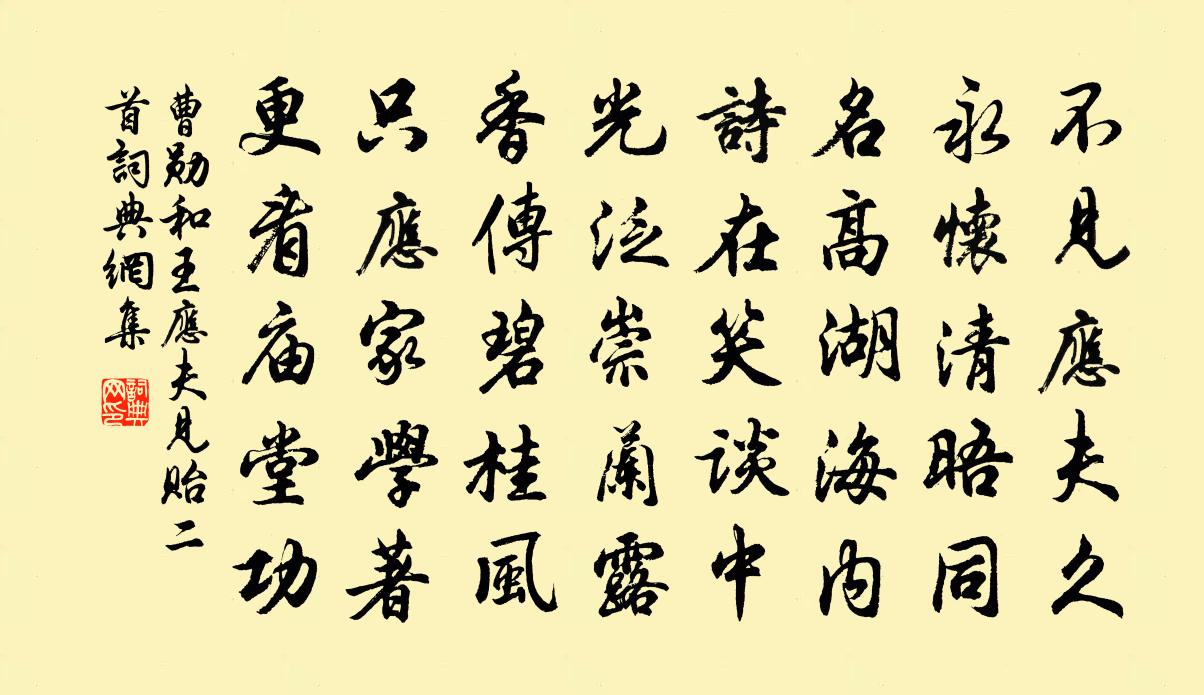 不見應夫久
永懷清晤同
名高湖海内
詩在笑談中
光泛崇蘭露
香傳碧桂風
只應家學著
更看庙堂功
曹勛和王應夫見貽二
首詞典網集
詞典网印